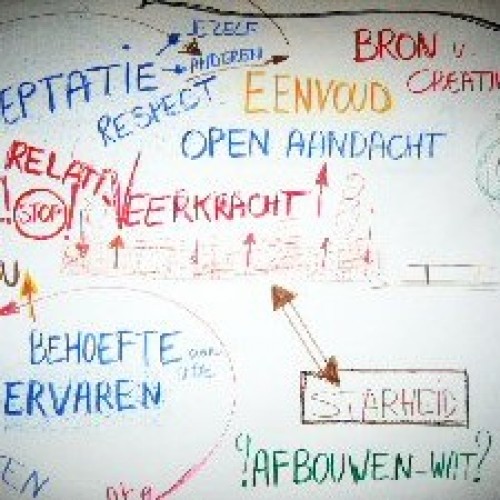 JEZELF
ANDEREN
EPTATIE
RESPECT
BRON v.
CREATIV
EENVOUD
OPEN AANDACHT
RELATI
STOP!
VEERKRACHT
BEHOEFTE
ERVAREN
STARHEID
?!AFBOUWEN-WAT?!